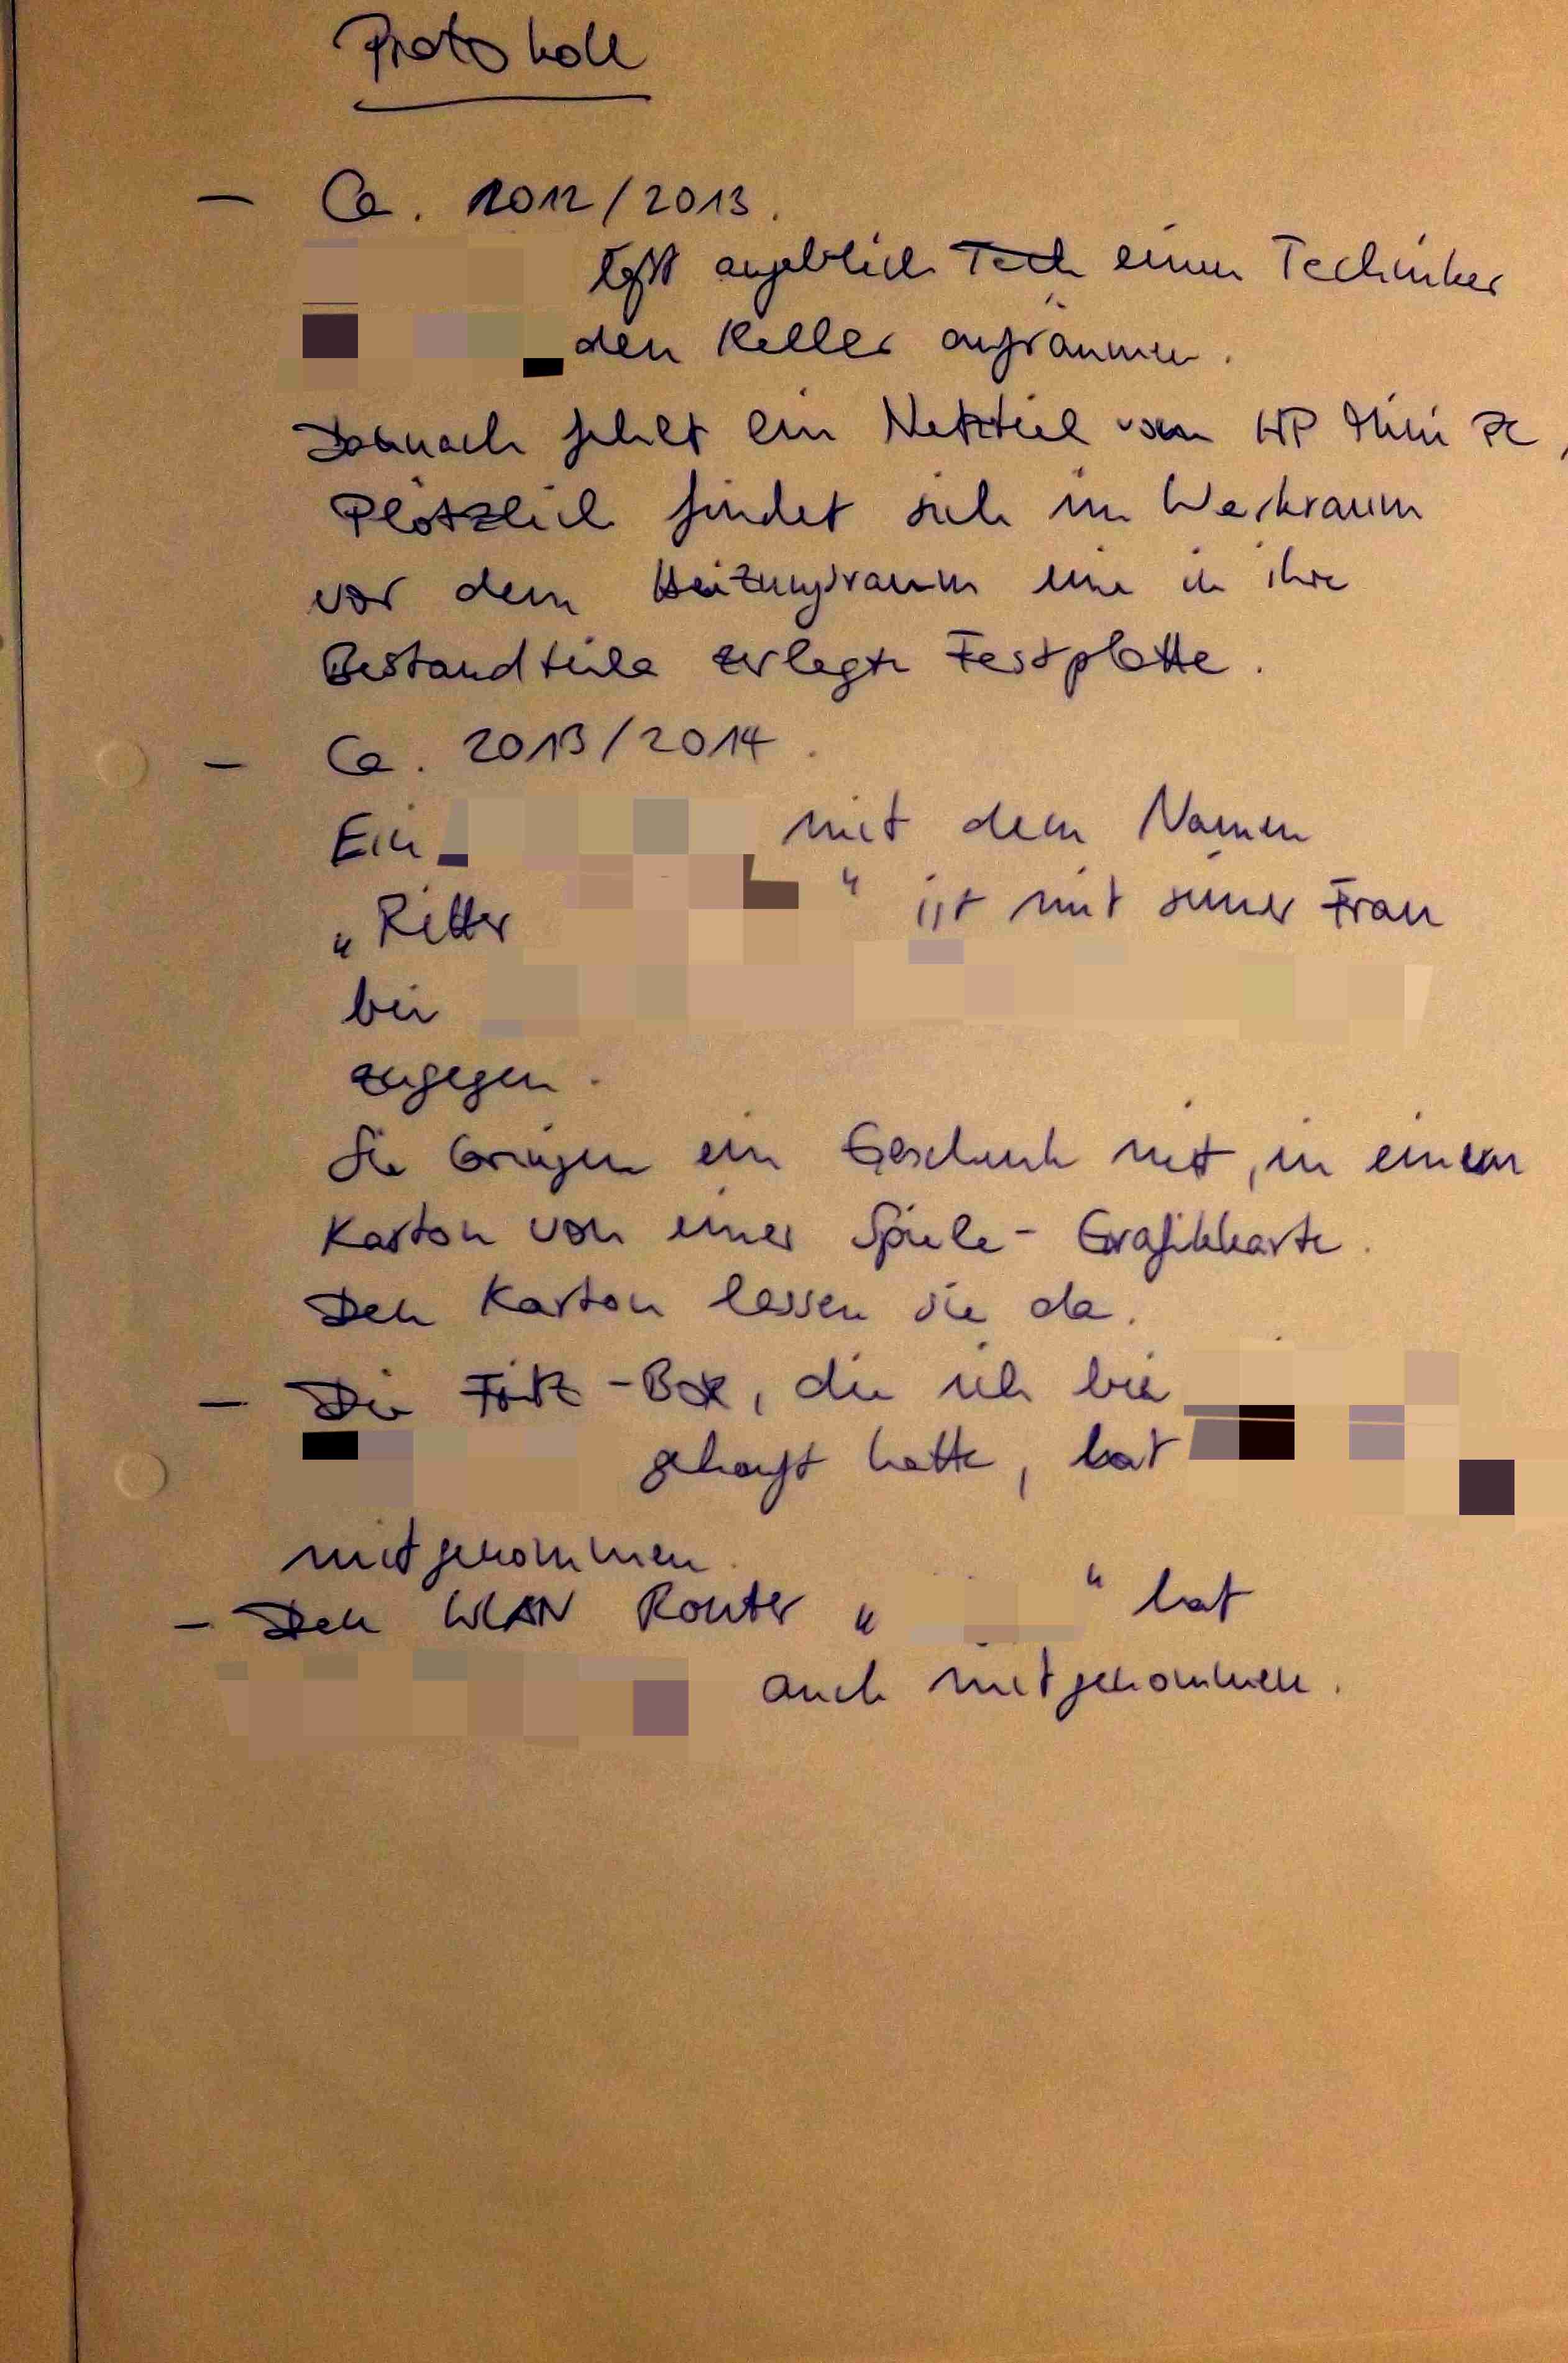 Protokoll
- Ca. 2012/2013.
läßt angeblich Tech einen Techniker
den Keller aufräumen.
Danach fehlt ein Netzteil vom HP Mini PC,
Plötzlich findet sich im Werkraum
vor dem Heizungsraum eine in ihre
Bestandteile zerlegte Festplatte.
- Ca. 2013/2014.
Ein mit dem Namen
„Ritter “ ist mit seiner Frau
bei
zugegen.
Sie bringen ein Geschenk mit, in einem
Karton von einer Spiele-Grafikkarte.
Den Karton lassen sie da.
- Die Fritz-Box, die ich bei
gekauft hatte, hat
mitgenommen.
- Den WLAN Router „ “ hat
auch mitgenommen.